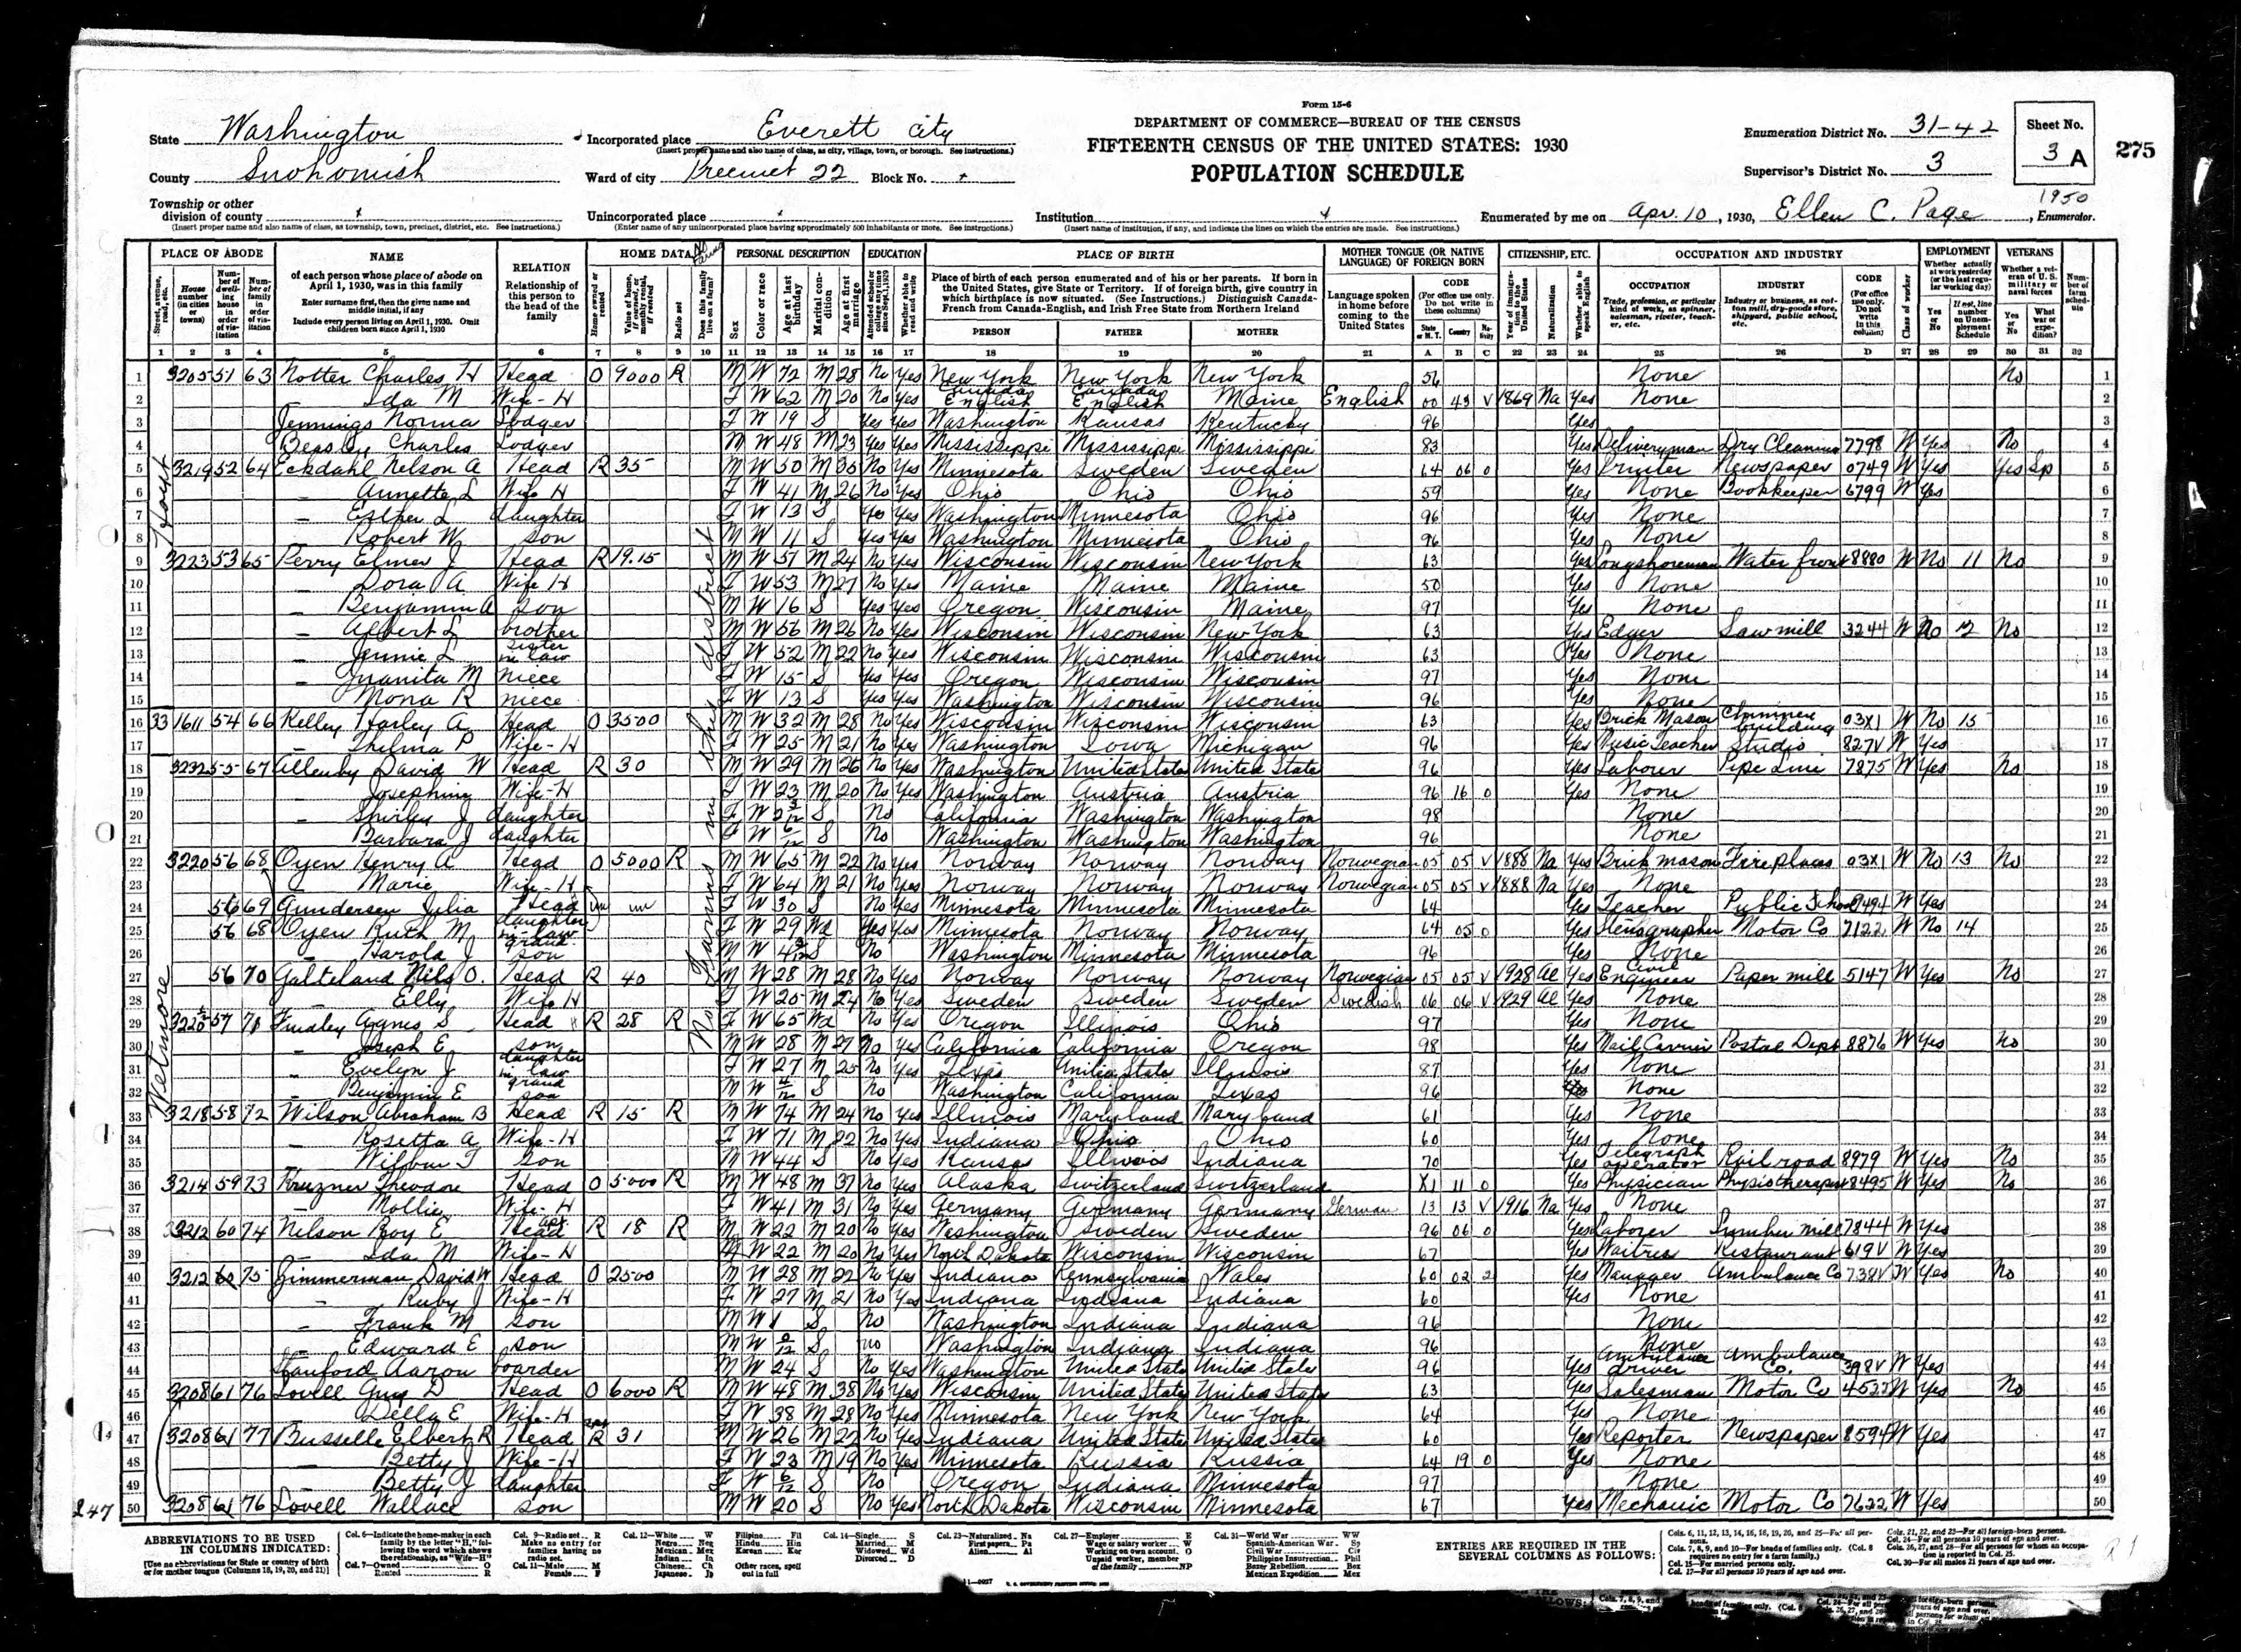 Form 15-6
DEPARTMENT OF COMMERCE—BUREAU OF THE CENSUS
FIFTEENTH CENSUS OF THE UNITED STATES: 1930
POPULATION SCHEDULE
State Washington
County Snohomish
Township or other division of county x
(Insert proper name and also name of class, as township, town, precinct, district, etc. See instructions.)
Incorporated place Everett City
(Insert proper name and also name of class, as city, village, town, or borough. See instructions.)
Ward of city Precinct 22 Block No. x
Unincorporated place x
(Enter name of any unincorporated place having approximately 500 inhabitants or more. See instructions.)
Institution x
(Insert name of institution, if any, and indicate the lines on which the entries are made. See instructions.)
Enumeration District No. 31-42
Supervisor's District No. 3
Sheet No. 3 A
275
1950
Enumerated by me on Apr. 10, 1930, Ellen C. Page, Enumerator.
PLACE OF ABODE NAME RELATION HOME DATA PERSONAL DESCRIPTION EDUCATION PLACE OF BIRTH MOTHER TONGUE (OR NATIVE LANGUAGE) OF FOREIGN BORN CITIZENSHIP, ETC. OCCUPATION AND INDUSTRY EMPLOYMENT VETERANS
Hoyt
Wetmore
No Farms in this district
1 3205 51 63 Notter Charles H Head O 9000 R M W 72 M 28 No Yes New York New York New York 56 None No
2 Ida M Wife-H F W 62 M 20 No Yes Canada English Canada English Maine English 00 43 V 1869 Na Yes None
3 Jennings Norma Lodger F W 19 S Yes Yes Washington Kansas Kentucky 96 Yes
4 Beasley Charles Lodger M W 48 M 23 Yes Yes Mississippi Mississippi Mississippi 83 Yes Deliveryman Dry Cleaning 7798 W Yes No
5 3219 52 64 Eckdahl Nelson A Head R 35 M W 50 M 35 No Yes Minnesota Sweden Sweden 64 06 0 Yes Printer Newspaper 0749 W Yes Yes Sp
6 Annette L Wife H F W 41 M 26 No Yes Ohio Ohio Ohio 59 Yes None Bookkeeper 6799 W Yes
7 Esther L daughter F W 13 S Yes Yes Washington Minnesota Ohio 96 Yes None
8 Robert W Son M W 11 S Yes Yes Washington Minnesota Ohio 96 Yes None
9 3223 53 65 Perry Elmer J Head R 19.15 M W 51 M 24 No Yes Wisconsin Wisconsin New York 63 Yes Longshoreman Water front 8880 W No 11 No
10 Dora A Wife H F W 53 M 27 No Yes Maine Maine Maine 50 Yes None
11 Benjamin A Son M W 16 S Yes Yes Oregon Wisconsin Maine 97 Yes None
12 Albert L brother M W 56 M 26 No Yes Wisconsin Wisconsin New York 63 Yes Edger Saw mill 3244 W No 12 No
13 Jennie L Sister in law F W 52 M 22 No Yes Wisconsin Wisconsin Wisconsin 63 Yes None
14 Juanita M Niece F W 15 S Yes Yes Oregon Wisconsin Wisconsin 97 Yes None
15 Mona R niece F W 13 S Yes Yes Washington Wisconsin Wisconsin 96 Yes None
16 33 1611 54 66 Kelley Harley A Head O 3500 M W 32 M 28 No Yes Wisconsin Wisconsin Wisconsin 63 Yes Brick Mason Chimney building 03X1 W No 15
17 Thelma P Wife-H F W 25 M 21 No Yes Washington Iowa Michigan 96 Yes Music Teacher Studio 827V W Yes
18 3232 55 67 Allenby David W Head R 30 M W 29 M 26 No Yes Washington United States United States 96 Yes Laborer Pipe Line 7875 W Yes No
19 Josephine Wife-H F W 23 M 20 No Yes Washington Austria Austria 96 16 0 Yes None
20 Shirley J daughter F W 2 3/12 S No California Washington Washington 98 None
21 Barbara J daughter F W 6/12 S No Washington Washington Washington 96 None
22 3220 56 68 Oyen Henry A Head O 5000 R M W 65 M 22 No Yes Norway Norway Norway Norwegian 05 05 V 1888 Na Yes Brick mason Fireplaces 03X1 W No 13 No
23 Marie Wife-H F W 64 M 21 No Yes Norway Norway Norway Norwegian 05 05 V 1888 Na Yes None
24 56 69 Gundersen Julia Head un un F W 30 S No Yes Minnesota Minnesota Minnesota 64 Yes Teacher Public School 9494 W Yes
25 56 68 Oyen Ruth M daughter in-law F W 29 Wd Yes Yes Minnesota Norway Norway 64 05 0 Yes Stenographer Motor Co 7122 W No 14
26 Harold J grand son M W S No Washington Minnesota Minnesota 96 Yes None
27 56 70 Galteland Nils O. Head R 40 M W 28 M 28 No Yes Norway Norway Norway Norwegian 05 05 V 1928 Al Yes Civil Engineer Paper mill 5147 W Yes No
28 Elly Wife H F W 25 M 24 No Yes Sweden Sweden Sweden Swedish 06 06 V 1929 Al Yes None
29 3220½ 57 71 Findley Agnes S Head R 28 R F W 65 Wd No Yes Oregon Illinois Ohio 97 Yes None
30 Joseph E son M W 28 M 27 No Yes California California Oregon 98 Yes Mail Carrier Postal Dept 8876 W Yes No
31 Evelyn J daughter in law F W 27 M 25 No Yes Texas United States Illinois 87 Yes None
32 Benjamin E grand son M W S No Washington California Texas 96 None
33 3218 58 72 Wilson Abraham B Head R 15 R M W 74 M 24 No Yes Illinois Maryland Maryland 61 Yes None
34 Rosetta A Wife-H F W 71 M 22 No Yes Indiana Ohio Ohio 60 Yes None
35 Wilbur T Son M W 44 S No Yes Kansas Illinois Indiana 70 Yes Telegraph operator Railroad 8979 W Yes No
36 3214 59 73 Kruzner Theodore Head O 5000 R M W 48 M 37 No Yes Alaska Switzerland Switzerland X1 11 0 Yes Physician Physiotherapy 8495 W Yes No
37 Mollie Wife-H F W 41 M 31 No Yes Germany Germany Germany German 13 13 V 1916 Na Yes None
38 3212 60 74 Nelson Roy E Head apt R 18 R M W 22 M 20 No Yes Washington Sweden Sweden 96 06 0 Yes Laborer Lumber mill 7844 W Yes
39 Ida M Wife-H W 22 M 20 No Yes North Dakota Wisconsin Wisconsin 67 Yes Waitress Restaurant 619V W Yes
40 3212 60 75 Zimmerman David W Head O 2500 M W 28 M 22 No Yes Indiana Pennsylvania Wales 60 02 2 Yes Manager Ambulance Co 738V W Yes No
41 Ruby J Wife-H F W 27 M 21 No Yes Indiana Indiana Indiana 60 Yes None
42 Frank M Son M W 1 S No Washington Indiana Indiana 96 None
43 Edward E Son M W 0/12 S no Washington Indiana Indiana 96 None
44 Stanford Aaron boarder M W 24 S No Yes Washington United States United States 96 Yes Ambulance driver Ambulance Co. 398V W Yes
45 3208 61 76 Lovell Guy D Head O 6000 R M W 48 M 38 No Yes Wisconsin United States United States 63 Yes Salesman Motor Co 4522 W Yes No
46 Della E Wife-H F W 38 M 28 No Yes Minnesota New York New York 64 Yes None
47 3208 61 77 Busselle Elbert R Head R 31 M W 26 M 22 No Yes Indiana United States United States 60 Yes Reporter Newspaper 8594 W Yes
48 Betty J Wife-H F W 23 M 19 No Yes Minnesota Russia Russia 64 19 0 Yes None
49 Betty J daughter F W 6/12 S No Oregon Indiana Minnesota 97 None
50 3208 61 76 Lovell Wallace Son M W 20 S No Yes North Dakota Wisconsin Minnesota 67 Yes Mechanic Motor Co 7622 W Yes
247
ABBREVIATIONS TO BE USED IN COLUMNS INDICATED:
[Use no abbreviations for State or country of birth or for mother tongue (Columns 18, 19, 20, and 21)]
ENTRIES ARE REQUIRED IN THE SEVERAL COLUMNS AS FOLLOWS: